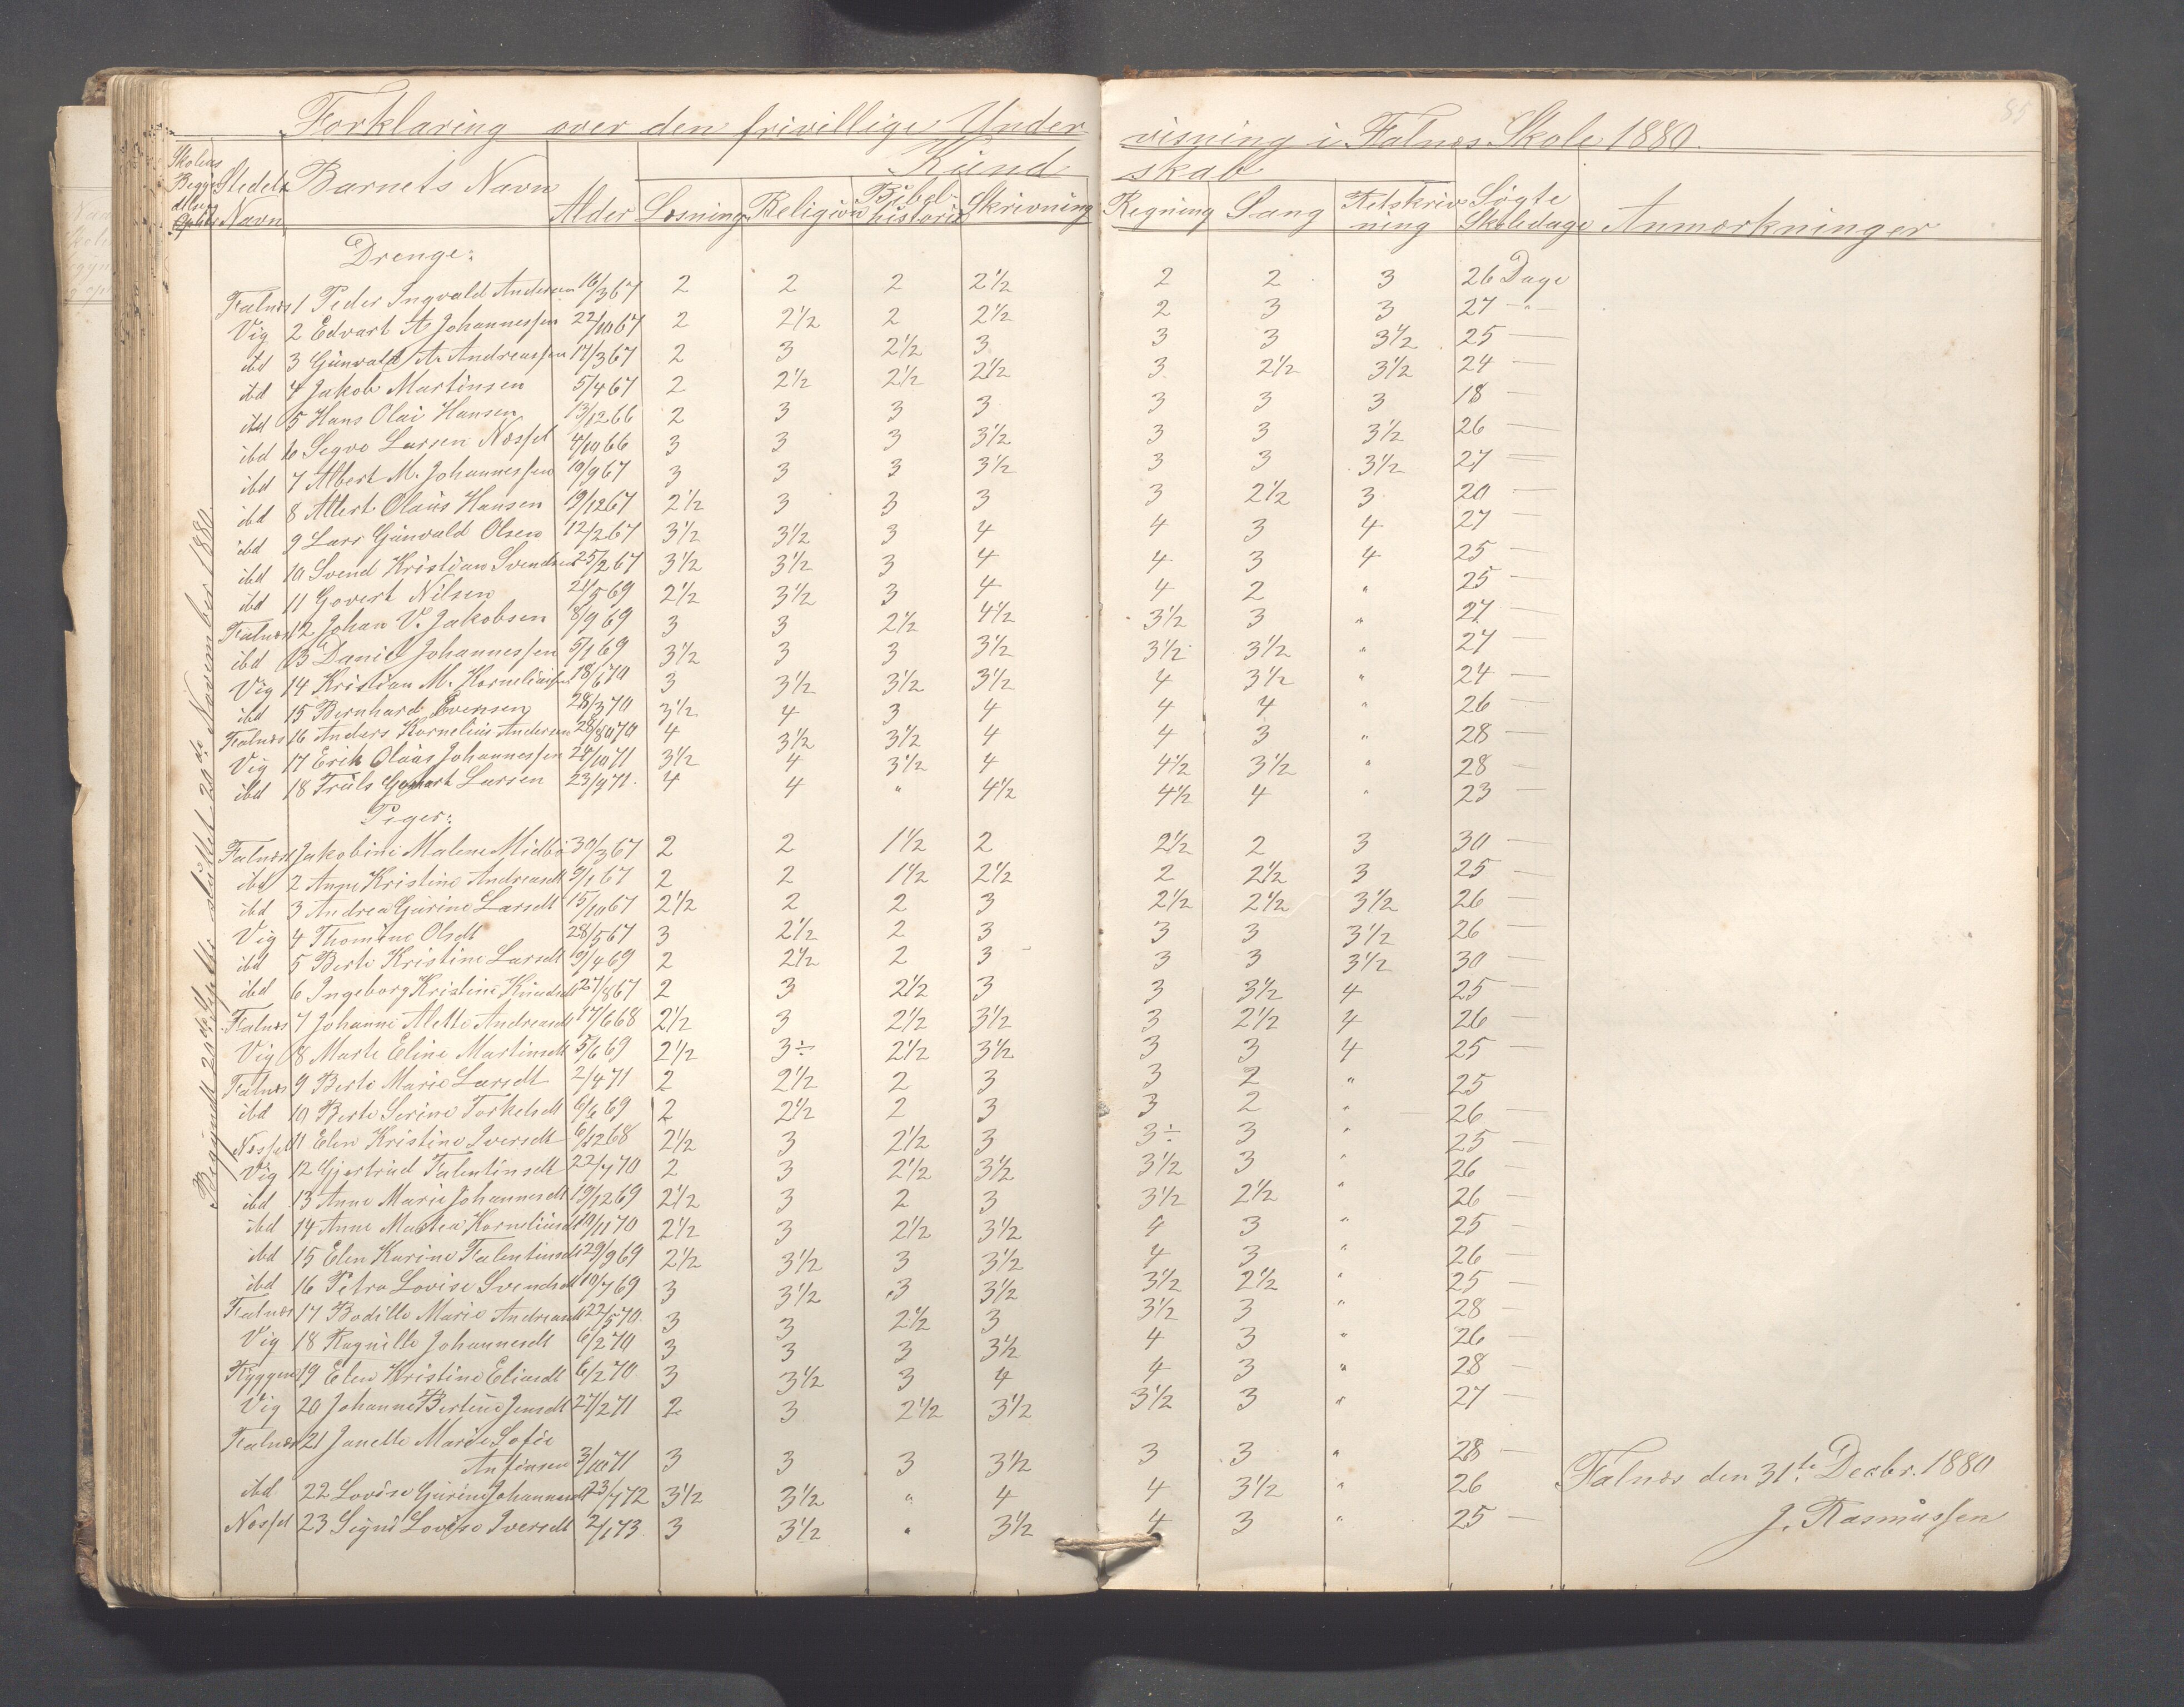 85
Forklaring over den frivillige Undervisning i Falnes Skole 1880.
Skolens Begyndelse og Ophør | Stedets Navn | Barnets Navn | Alder | Kundskab | Søgte Skoledage | Anmærkninger
Læsning | Religion | Bibelhistorie | Skrivning | Regning | Sang | Retskrivning
Begyndt 20de Septbr sluttet 20de November 1880.
Drenge:
Falnes 1 Peder Ingvald Andersen 16/3 67 2 2 2 2½ 2 2 3 26 Dage
Vig 2 Edvart A Johannessen 22/10 67 2 2½ 2 2½ 2 3 3 27 "
ibd 3 Gunvald A. Andreassen 17/3 67 2 3 2½ 3 3 3 3½ 25 —
ibd 4 Jakob Martinsen 5/4 67 2 2½ 2½ 2½ 3 2½ 3½ 24 —
ibd 5 Hans Olai Hansen 13/12 66 2 3 3 3 3 3 3 18 —
ibd 6 Segvo Larsen Næssel 4/10 66 3 3 3 3½ 3 3 3½ 26 —
ibd 7 Albert M. Johannessen 19/9 67 3 3 3 3½ 3 3 3½ 27 —
ibd 8 Albert Olaus Hansen 19/12 67 2½ 3 3 3 3 2½ 3 20 —
ibd 9 Lars Gunvald Olsen 12/2 67 3½ 3½ 3 4 4 3 4 27 —
ibd 10 Svend Kristian Svendsen 25/2 67 3½ 3½ 3 4 4 3 4 25 —
ibd 11 Govert Nilsen 21/5 69 2½ 3½ 3 4 4 2 " 25 —
Falnes 12 Johan V. Jakobsen 8/9 69 3 3 2½ 4½ 3½ 3 " 27 —
ibd 13 Daniel Johannessen 5/1 69 3½ 3 3 3½ 3½ 3½ " 27 —
Vig 14 Kristian M. Korneliussen 18/6 70 3 3½ 3½ 3½ 4 3½ " 24 —
ibd 15 Bernhard Evensen 28/3 70 3½ 4 3 4 4 4 " 26 —
Falnes 16 Anders Kornelius Andersen 28/8 70 4 3½ 3½ 4 4 3 " 28 —
Vig 17 Erik Olaus Johannessen 24/10 71 3½ 4 3½ 4 4½ 3½ " 28 —
ibd 18 Truls Govart Larsen 23/9 71. 4 4 " 4½ 4½ 4 " 23 —
Piger:
Falnes 1 Jakobine Malene Midbø 30/3 67 2 2 1½ 2 2½ 2 3 30 —
ibd 2 Anne Kristine Andreasdt 9/1 67 2 2 1½ 2½ 2 2½ 3 25 —
ibd 3 Andrea Gurine Larsdt 15/10 67 2½ 2 2 3 2½ 2½ 3½ 26 —
Vig 4 Thomine Olsdt 28/5 67 3 2½ 2 3 3 3 3½ 26 —
ibd 5 Berte Kristine Larsdt 19/4 69 2 2½ 2 3 3 3 3½ 30 —
ibd 6 Ingeborg Kristine Knudsdt 27/8 67 2 3 2½ 3 3 3½ 4 25 —
Falnes 7 Johanne Alette Andreasdt 17/6 68 2½ 3 2½ 3½ 3 2½ 4 26 —
Vig 8 Marte Eline Martinsdt 5/6 69 2½ 3÷ 2½ 3½ 3 3 4 25 —
Falnes 9 Berte Marie Larsdt 2/4 71 2 2½ 2 3 3 2 " 25
ibd 10 Berte Serine Torkelsdt 6/6 69 2 2½ 2 3 3 2 " 26 —
Næssel 11 Elen Kristine Iversdt 6/12 68 2½ 3 2½ 3 3÷ 3 " 25 —
Vig 12 Gjertrud Falentinsdt 22/7 70 2 3 2½ 3½ 3½ 3 " 26 —
ibd 13 Anne Marie Johannesdt 19/12 69 2½ 3 2 3 3½ 2½ " 26 —
ibd 14 Anne Martea Korneliusdt 19/11 70 2½ 3 2½ 3½ 4 3 " 25 —
ibd 15 Elen Karine Falentinsdt 29/9 69 2½ 3½ 3 3½ 4 3 " 26 —
ibd 16 Petra Lovise Svendsdt 19/7 69 3 3½ 3 3½ 3½ 2½ " 25 —
Falnes 17 Bodille Marie Andreasdt 22/5 70. 3 3 2½ 3 3½ 3 " 28 —
Vig 18 Ragnille Johannesdt 6/2 70 3 3 3 3½ 4 3 " 26 —
Ryggen 19 Elen Kristine Eliasdt 6/2 70 3 3½ 3 4 4 3 " 28 —
Vig 20 Johanne Bertine Jensdt 27/2 71 2 3 2½ 3½ 3½ 3 " 27 —
Falnes 21 Janette Marie Sofie
Anfinsen 3/10 71 3 3 3 3½ 3 3 " 28 —
ibd 22 Lovise Gurine Johannesdt 23/7 72 3½ 3½ " 4 4 3½ " 26
Næssel 23 Signe Lovise Iversdt 2/1 73. 3 3½ " 3½ 4 3 " 25 —
Falnes den 31te Decbr. 1880
J. Rasmussen